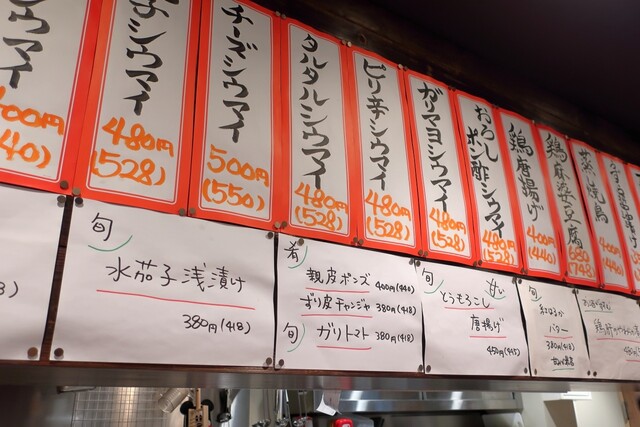 シウマイ
400円
(440)
辛シウマイ
480円
(528)
チーズシウマイ
500円
(550)
タルタルシウマイ
480円
(528)
ピリ辛シウマイ
480円
(528)
ガリマヨシウマイ
480円
(528)
おろし
ポン酢シウマイ
480円
(528)
鶏唐揚げ
400円
(440)
鶏麻婆豆腐
680
(748)
蒸し焼鳥
400円
(440)
旬
水茄子浅漬け
380円(418)
肴
親皮ポンズ 400円(440)
ずり皮チャンジャ 380円(418)
旬 ガリトマト 380円(418)
旬 甘い
とうもろこし
唐揚げ
450円(495)
旬
バター
380円(418)